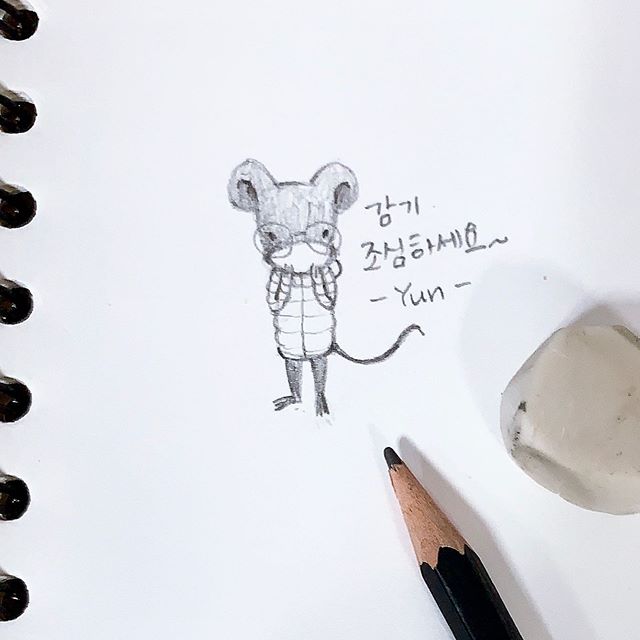 감기
조심하세요~
- Yun -